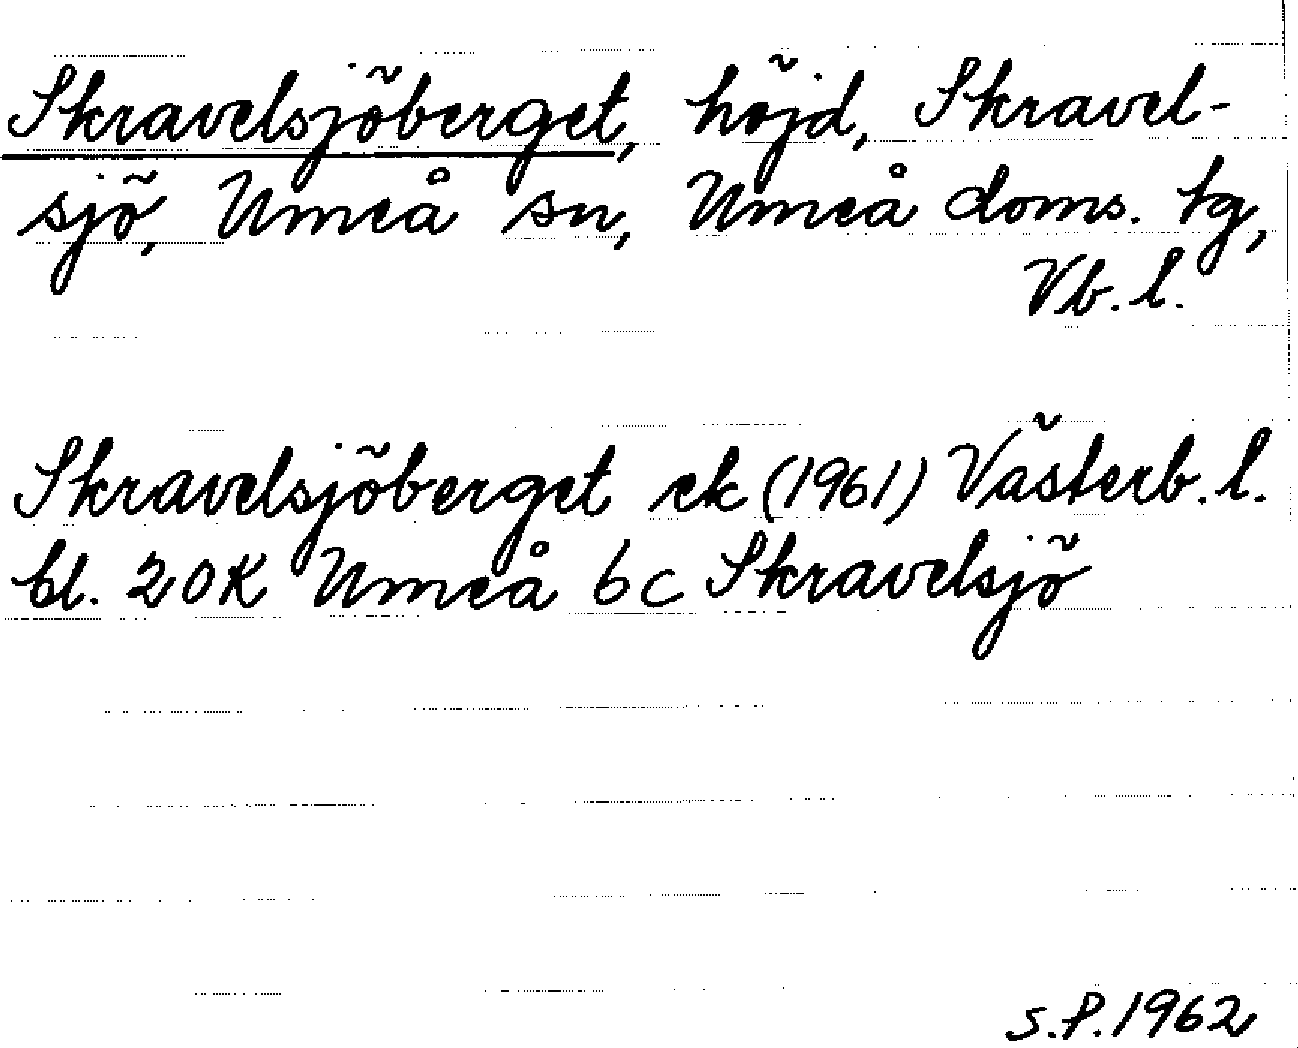 Skravelsjöberget, höjd, Skravel-
sjö, Umeå sn, Umeå doms. tg,
Vb. l.
Skravelsjöberget ek (1961) Västerb. l.
bl. 20K Umeå 6c Skravelsjö
S.P. 1962